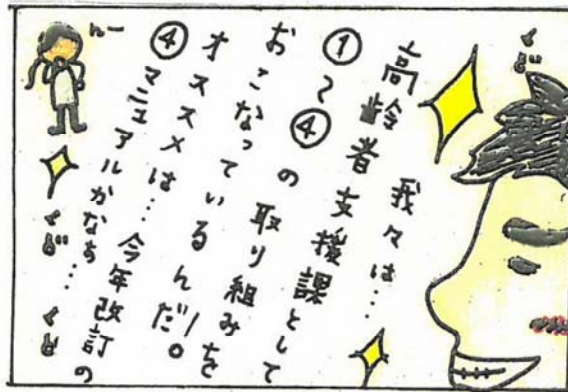 くど
我々は…
高齢者支援課として
①〜④の取り組みを
おこなっているんだ!。
オススメは…今年改訂の
④マニュアルかなぁ…
くど くど
んー